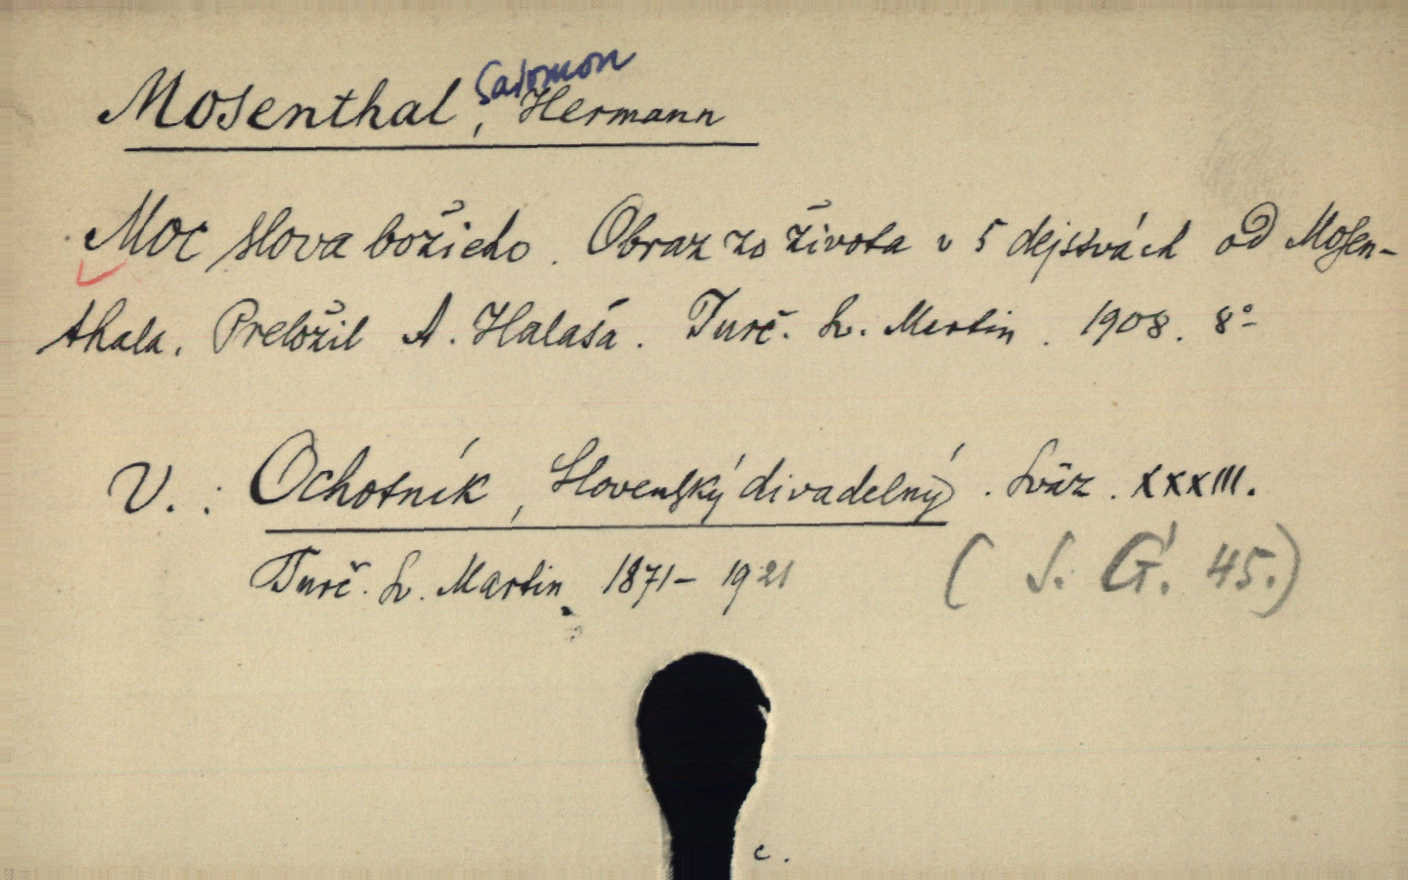 Mosenthal, Salomon Hermann
Moc slova božieho. Obraz zo života v 5 dejstvách od Mosen-
thala. Preložil A. Halaša. Turč. Sv. Martin. 1908. 8°
V.: Ochotník, Slovenský divadelný. Sväz. XXXIII.
Turč. Sv. Martin 1871- 1921
( S. G. 45.)
c.